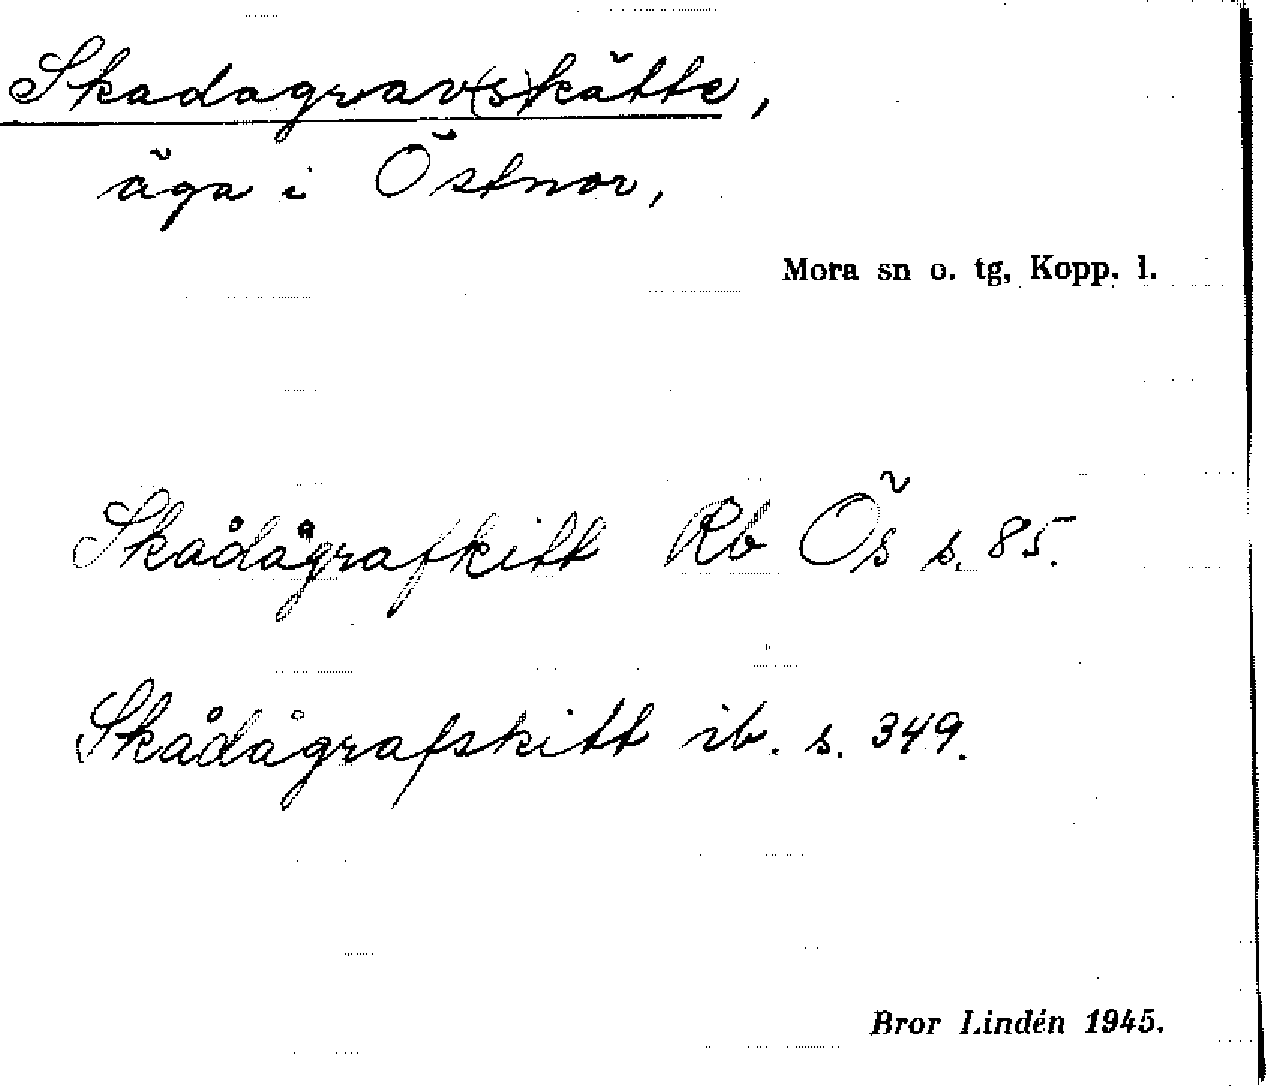 Skadagrav(s)kätte,
äga i Östnor,
Mora sn o. tg, Kopp. l.
Skådågrafkitt Rb Ös s. 85.
Skådågrafskitt ib. s. 349.
Bror Lindén 1945.